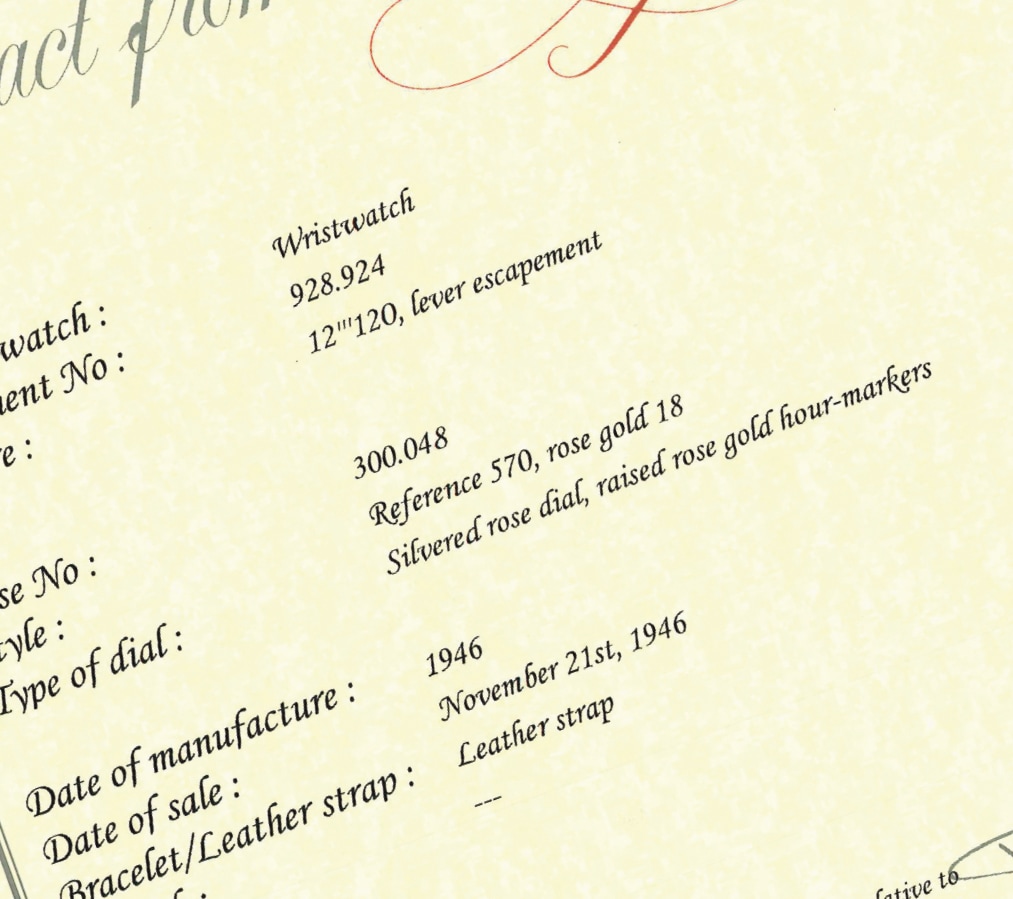 act from
watch : Wristwatch
ent No : 928.924
e : 12'''120, lever escapement
se No : 300.048
tyle : Reference 570, rose gold 18
Type of dial : Silvered rose dial, raised rose gold hour-markers
Date of manufacture : 1946
Date of sale : November 21st, 1946
Bracelet/Leather strap : Leather strap
---
lative to